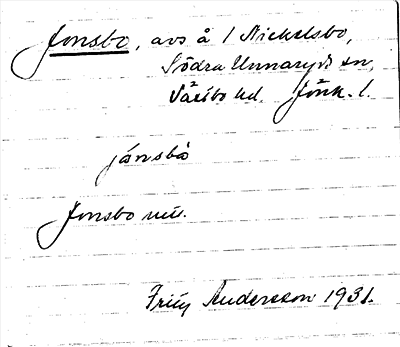 Jonsbo, avs å 1 Nickelsbo,
Södra Unnaryds sn,
Västbo hd. Jönk. l.
jónsbò
Jonsbo
Andersson 1931.